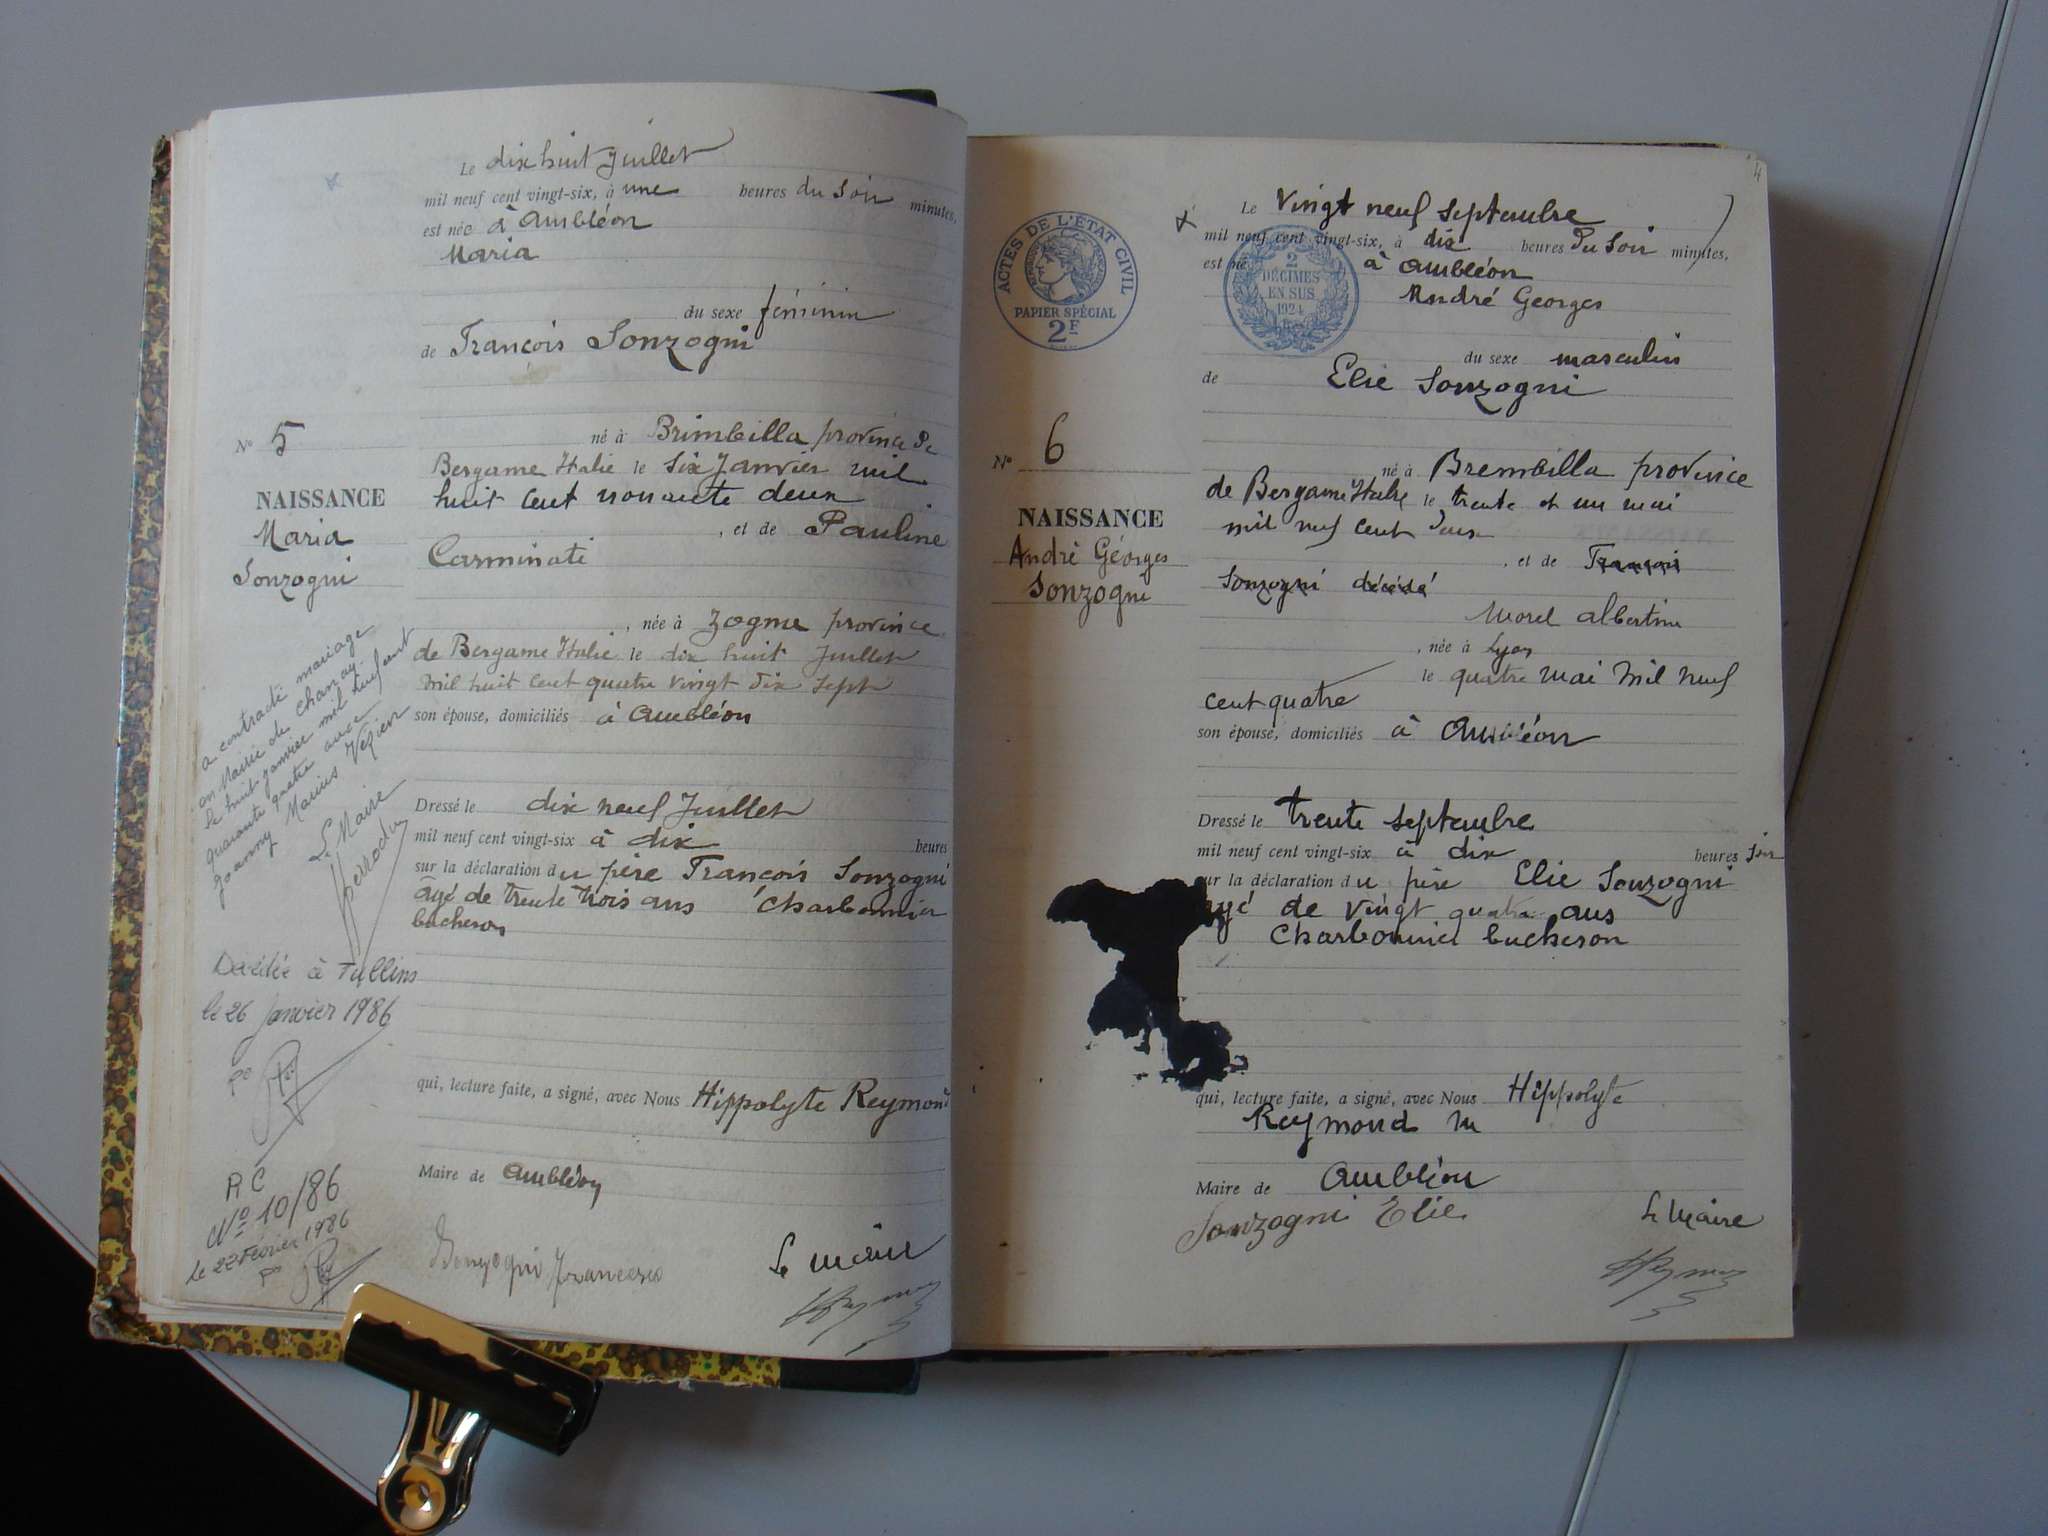 Le dix huit Juillet
mil neuf cent vingt-six, à une heures du Soir minutes,
est née à Ambléon
Maria
du sexe féminin
de François Sonzogni
No 5
né à Brimbilla province de
Bergame Italie le six Janvier mil
huit cent nonante deux
NAISSANCE
Maria
Sonzogni
, et de Pauline
Carminati
, née à Zogme province
de Bergame Italie le dix huit Juillet
mil huit cent quatre vingt dix sept
son épouse, domiciliés à Ambléon
a contracté mariage
en Mairie de Chanay
le huit janvier mil neuf cent
quarante quatre avec
Joanny Marius Vézien
Le Maire
Dressé le dix neuf Juillet
mil neuf cent vingt-six à dix heures
sur la déclaration du père François Sonzogni
âgé de trente trois ans Charbonnier
bucheron
Décédée à Tullins
le 26 Janvier 1986
po
qui, lecture faite, a signé, avec Nous Hippolyte Reymond
RC
No 10/86
le 22 Février 1986
po
Maire de Ambléon
Sonzogni Francesco Le Maire
4
ACTES DE L'ÉTAT CIVIL
PAPIER SPÉCIAL
2F
2
DÉCIMES
EN SUS
1924
Le Vingt neuf Septembre
mil neuf cent vingt-six, à dix heures Du Soir minutes,
est né à Ambléon
André Georges
du sexe masculin
de Elie Sonzogni
No 6
né à Brembilla province
de Bergame Italie le trente et un mai
mil neuf cent deux
NAISSANCE
André Géorges
Sonzogni
, et de François
Sonzogni décédé
Morel Albertine
, née à Lyon
le quatre Mai Mil neuf
cent quatre
son épouse, domiciliés à Ambléon
Dressé le trente Septembre
mil neuf cent vingt-six à dix heures soir
sur la déclaration du père Elie Sonzogni
âgé de vingt quatre ans
Charbonnier bucheron
qui, lecture faite, a signé, avec Nous Hippolyte
Reymond
Maire de Ambléon
Sonzogni Elie Le Maire